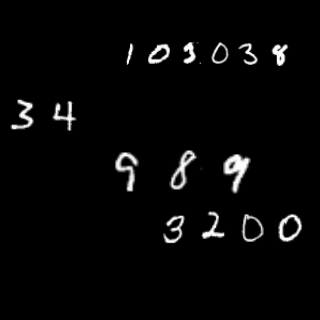 103038
34
989
3200